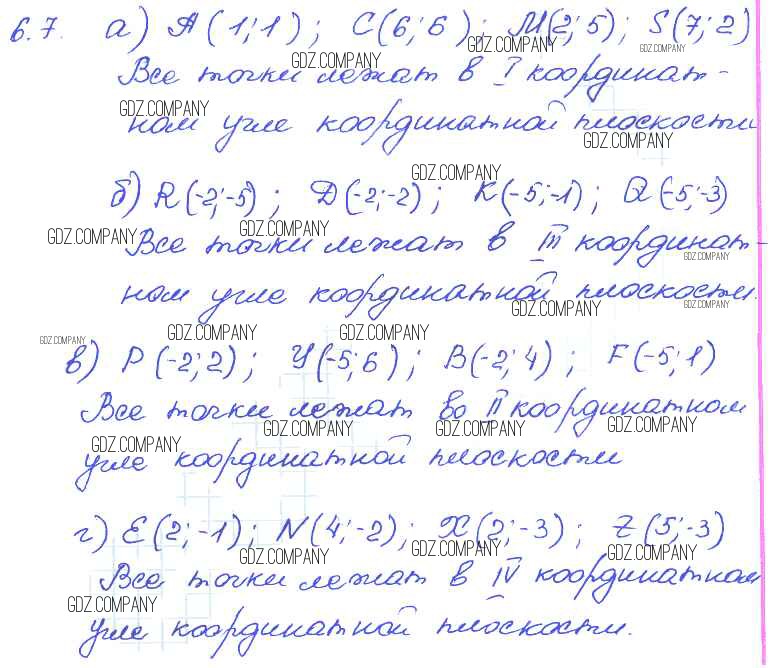 6.7. а) A(1;1); C(6;6); M(2;5); S(7;2)
GDZ.COMPANY GDZ.COMPANY GDZ.COMPANY
Все точки лежат в I координат-
GDZ.COMPANY
ном угле координатной плоскости
GDZ.COMPANY
GDZ.COMPANY
б) R(-2;-5); D(-2;-2); K(-5;-1); Q(-5;-3)
GDZ.COMPANY GDZ.COMPANY
Все точки лежат в III координат-
GDZ.COMPANY
ном угле координатной плоскости.
GDZ.COMPANY GDZ.COMPANY
GDZ.COMPANY GDZ.COMPANY GDZ.COMPANY
в) P(-2;2); Y(-5;6); B(-2;4); F(-5;1)
Все точки лежат во II координатном
GDZ.COMPANY GDZ.COMPANY GDZ.COMPANY GDZ.COMPANY
угле координатной плоскости
г) E(2;-1); N(4;-2); X(2;-3); Z(5;-3)
GDZ.COMPANY GDZ.COMPANY GDZ.COMPANY
Все точки лежат в IV координатном
GDZ.COMPANY
угле координатной плоскости.